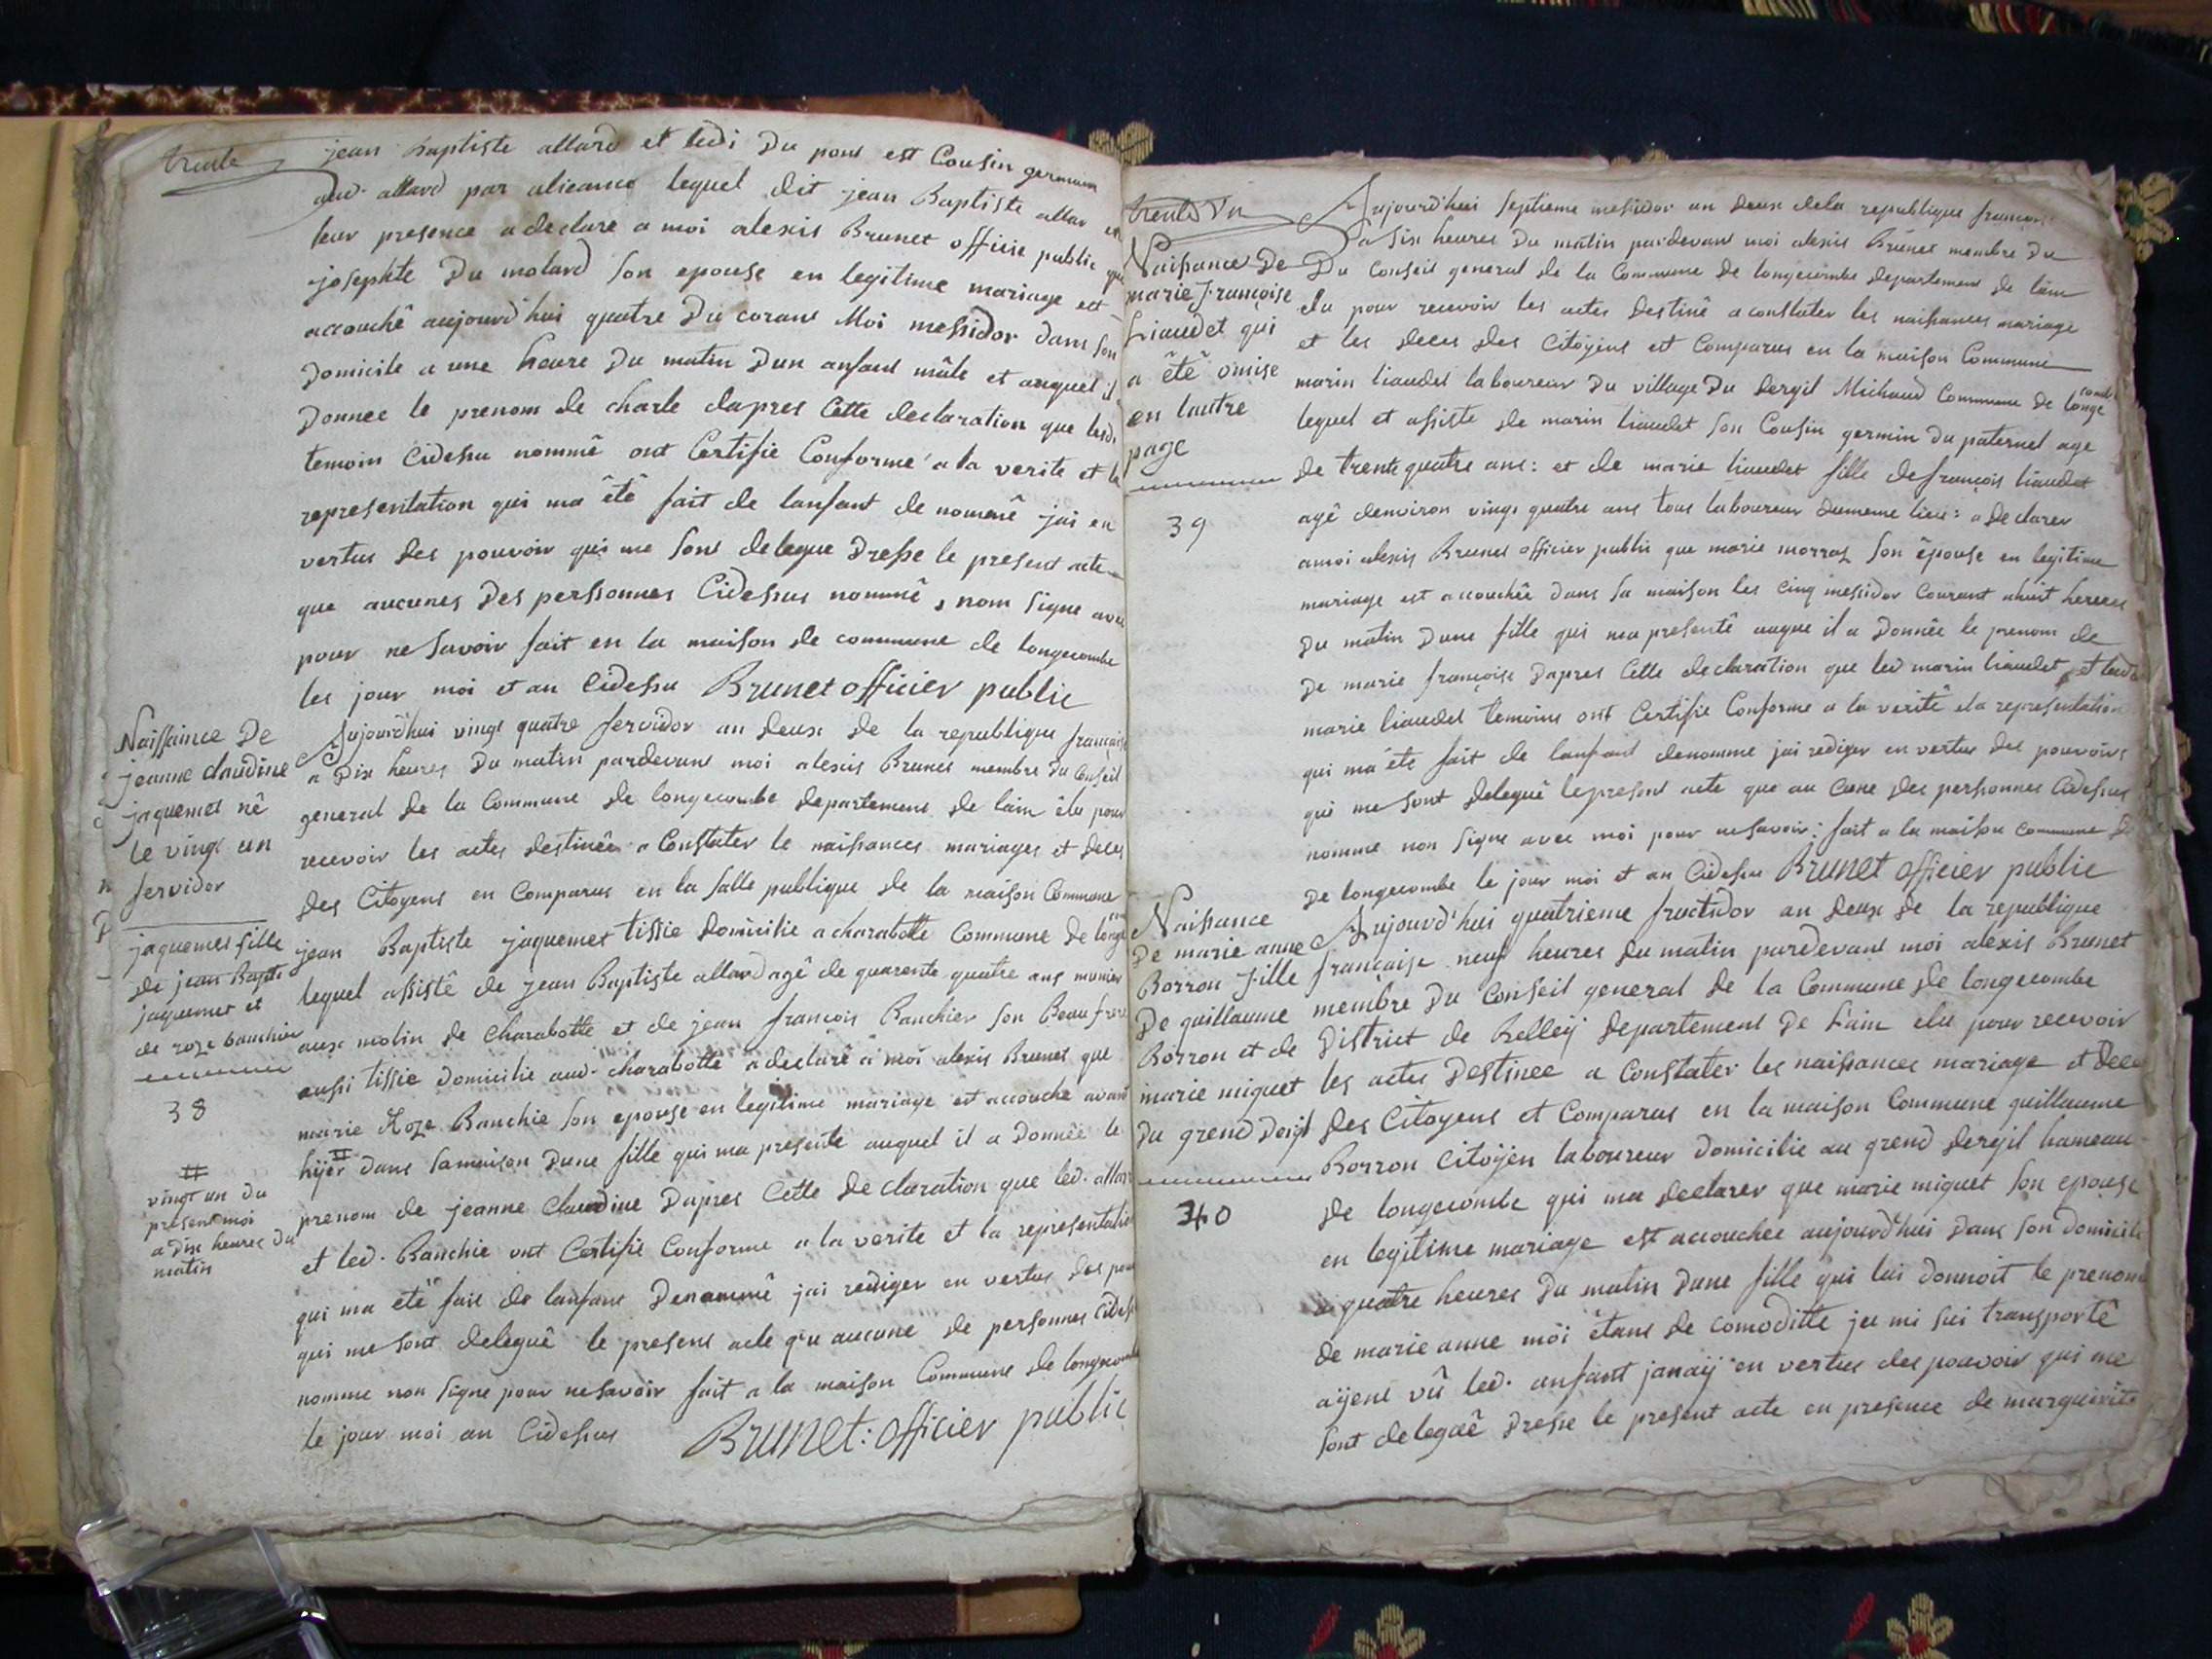 trente
jean Baptiste allard et ledi Du pont est Cousin germain
aud. allard par alieance lequel dit jean Baptiste allar en
leur presence a declare a moi alexis Brunet officie public que
josephte Du molard son epouse en legitime mariage est
accouchê aujourd'hui quatre Du corant Moi messidor dans son
Domicile a une heure Du matin Dun anfant mâle et auquel il
Donnee le prenom de charle dapres Cette declaration que lesd.
temoin Cidessu nommê ont Certifie Conforme a la verite et la
representation qui ma êtê fait de lanfant de nommê jai en
vertus des pouvoir qui me sont delegue Dresse le present acte
que aucunes Des perssonnes Cidessus nommê, nom signe avec
pour ne savoir fait en la maison de commune de longecombe
les jour moi et an Cidessu Brunet officier public
Naissance De
jeanne claudine
jaquemet nê
le vingt un
fervidor
jaquemet fille
de jean Bapte
jaquemet et
de roze banchin
38
#
vingt un du
present moi
a Dix heures du
matin
Aujourd'hui vingt quatre fervidor an deux de la republique française
a Dix heures Du matin pardevant moi alexis Brunet membre Du Conseil
general de la Commune de longecombe departement de lain êlu pour
recevoir les actes destinêe a Constater le naissances mariages et deces
des Citoyens en Comparus en la salle publique de la maison Commune
jean Baptiste jaquemet tissie domicilie a charabotte Commune de longe
lequel assistê de jean Baptiste allard agê de quarente quatre ans munier
aux molin de Charabotte et de jean francois Banchier son Beau frere
aussi tissie domicilie aud. charabotte a declarê a moi alexis Brunet que
marie Roze Banchie son epouse en legitime mariage est accouche avant
hÿer # dans samaison Dune fille qui ma presente auquel il a Donnêe le
prenom de jeanne Claudine Dapres Cette declaration que led. allar
et led. Banchie ont Certifie Conforme a la verite et la representation
qui ma êtê fait de lanfant Denommê jai rediger en vertus des pou
qui me sont deleguê le present acte qu'u aucune de personnes Cidess
nomme non signe pour nesavoir fait a la maison Commune de longecombe
le jour moi an Cidessus Brunet: officier public
trente Un
Naissance De
marie françoise
Liaudet qui
a êtê omise
en lautre
page
39
Aujourd'hui septieme messidor an deux dela republique françois
a six heures Du matin pardevant moi alexis Brunet membre Du
Du Conseil general de la Commune de longecombe departement de lain
elu pour recevoir les actes destinê a constater les naissances mariage
et les deces des Citoyens est Comparus en la maison Commune
marin liaudet laboureur Du village Du dergil Michaud Commune de longe combe
lequel et assiste de marin liaudet son Cousin germin du paternel age
de trente quatre ans: et de marie liaudet fille de françois liaudet
agê denviron vingt quatre ans tous laboureur Dumeme lieu: a declarer
amoi alexis Brunet officier public que marie morraz son êpouse en legitime
mariage est accouchêe dans sa maison les cinq messidor Courant ahuit hereres
Du matin Dune fille qui ma presentê auque il a Donnêe le prenom de
De marie françoise Dapres Cette declaration que led marin liaudet et lad
marie liaudet temoins ont Certifie Conforme a la veritê ela representation
qui ma ête fait de lanfant denomme jai rediger en vertus des pouvoirs
qui me sont deleguê lepresent acte que au cune des perssonnes Cidessus
nomme non signe avec moi pour nesavoir: fait a la maison commune De
De longecombe le jour moi et an Cidessu Brunet officier public
Naissance
De marie anne
Borron fille
De guillaume
Borron et de
marie miguet
Du grend Dergil
340
Aujourd'hui quatrieme fructidor an deux de la republique
française neuf heures du matin pardevant moi alexis Brunet
membre Du Conseil general de la Commune de longecombe
District de Belleÿ departement De L'ain elu pour recevoir
les actes Destinee a Constater les naissances mariage et Dece
des Citoyens et Comparus en la maison Commune guillaume
Borron Citoÿen laboureur Domicilie au grend Dergil hameau
de longecombe qui ma declarer que marie miguet son epouse
en legitime mariage est accouchee aujourd'hui dans son domicile
a quatre heures Du matin Dune fille qui lui donnoit le prenom
de marie anne moi êtant de comoditte je mi sui transportê
aÿent vû led. anfant janaÿ en vertus des pouvoir qui me
sont deleguê Dresse le present acte en presence de marguerite